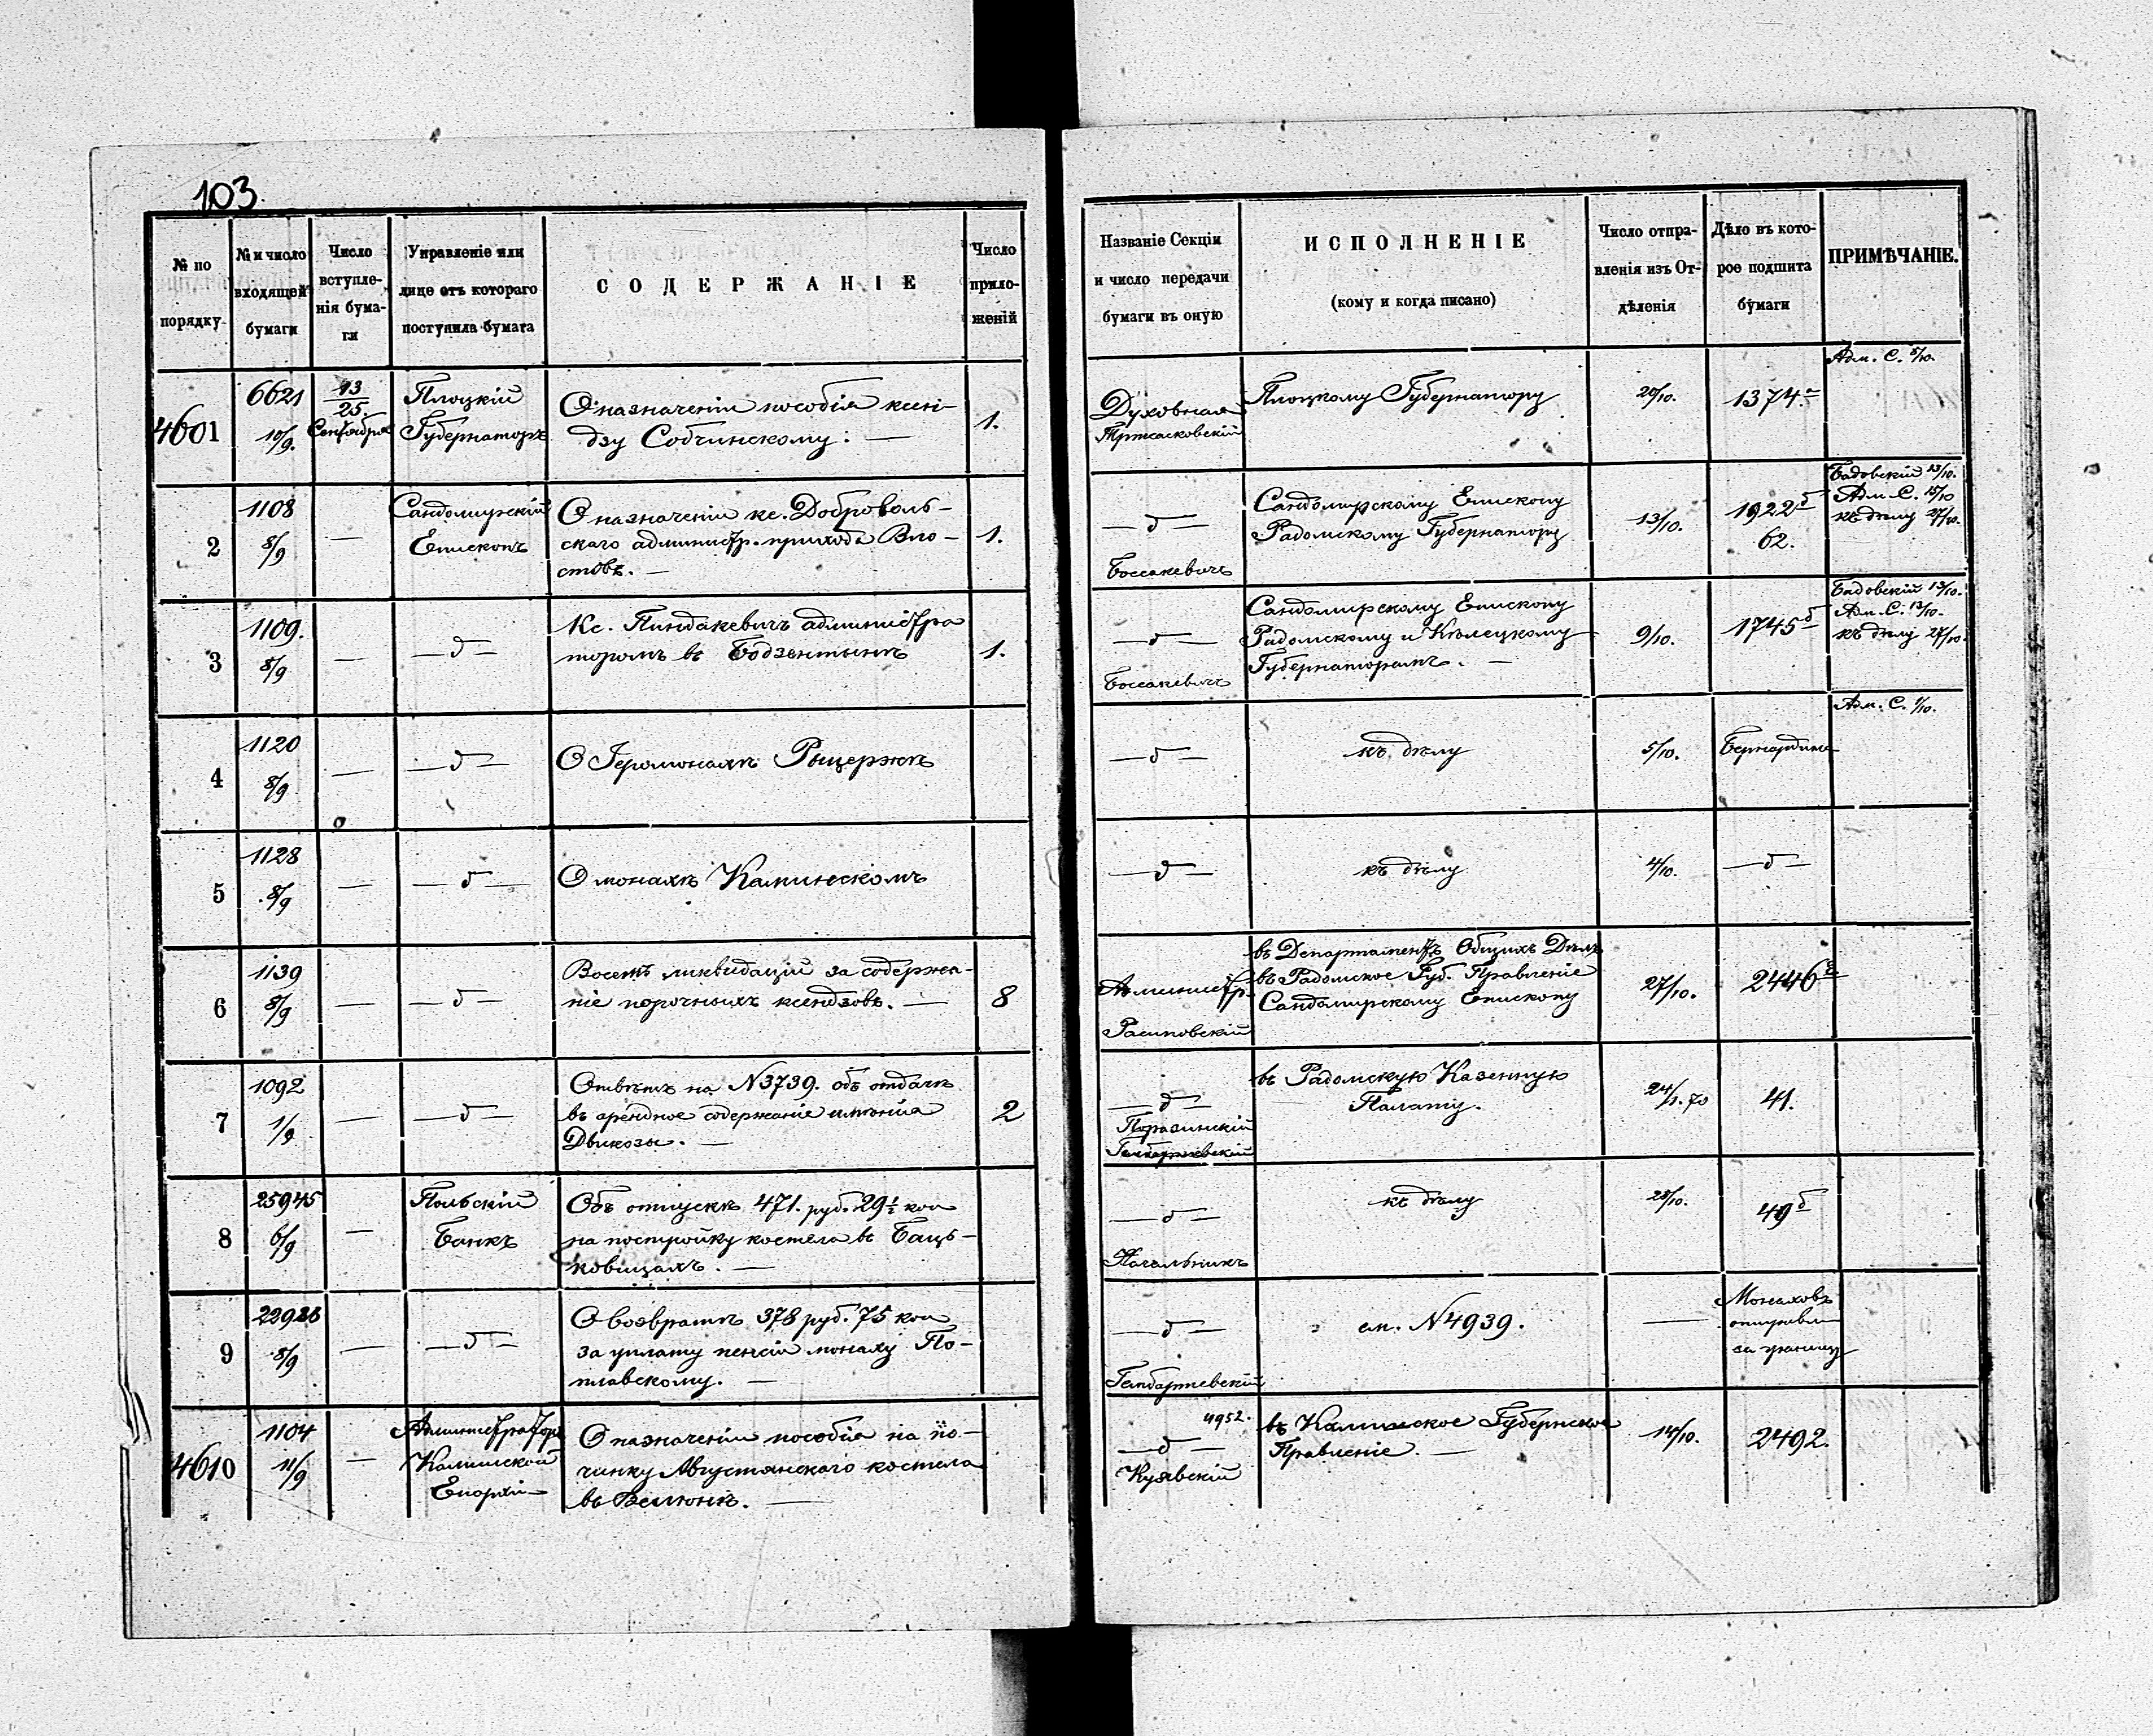 103.
№ по порядку
№ и число входящей бумаги
Число вступленія бумаги
Управленіе или лице отъ котораго поступила бумага
СОДЕРЖАНІЕ
Число приложеній
Названіе Секціи и число передачи бумаги въ оную
ИСПОЛНЕНІЕ
(кому и когда писано)
Число отправленія изъ Отдѣленія
Дѣло въ которое подшита бумаги
ПРИМѢЧАНІЕ.
4601
6621
10/9.
13/25.
Сентября
Плоцкій
Губернаторъ
О назначеніи пособія ксен-
дзу Собчинскому. —
1.
Духовная
Плоцкому Губернатору
20/10.
1374.а
Адм. С. 5/10.
2
1108
8/9
—
Сандомирскій
Епископъ
О назначеніи кс. Доброволь-
скаго администр. прихода Вло-
стовъ. —
1.
— д —
Боссакевичъ
Сандомирскому Епископу
Радомскому Губернатору
13/10.
1922 б
62.
Бадовскій 13/10.
Адм. С. 15/10
къ дѣлу 27/10.
3
1109.
8/9
—
— д —
Кс. Пиндакевичъ администра
торомъ въ Бодзентынѣ
1.
— д —
Боссакевичъ
Сандомирскому Епископу
Радомскому и Кѣлецкому
Губернаторамъ. —
9/10.
1745 б
Бадовскій 13/10.
Адм. С. 13/10.
къ дѣлу 27/10.
4
1120
8/9
—
— д —
О Іеромонахѣ Рыцержѣ
— д —
къ дѣлу
5/10.
Адм. С. 1/10.
5
1128
8/9
—
— д —
О монахѣ Каминскомъ
— д —
къ дѣлу
4/10.
— д —
6
1139
8/9
—
— д —
Восемь ликвидацій за содержа-
ніе порочныхъ ксендзовъ. —
8
Админист��.
въ Департаментъ Общихъ Дѣлъ
въ Радомское Губ. Правленіе
Сандомирскому Епископу
27/10.
2446
7
1092
1/9
—
— д —
Отвѣтъ на N3739. объ отдачѣ
въ арендное содержаніе имѣнія
Двикозы. —
2
— д —
въ Радомскую Казенную
Палату.
24/1.70
41.
8
25945
6/9
—
Польскій
Банкъ
Объ отпускѣ 471. руб. 29 1/2 коп
на постройку костела въ Баць-
ковицахъ. —
— д —
Начальникъ
къ дѣлу
28/10.
49 б
9
8/9
—
— д —
О возвратѣ 378 руб. 75 коп
за уплату пенсіи монаху По-
плавскому. —
— д —
см. N4939.
—
Монаховъ
за границу
4610
1104
11/9
—
Администраторъ
Калишской
Епархіи
О назначеніи пособія на по-
чинку Августянскаго костела
въ Велюнѣ. —
4952.
— д —
Куявскій
въ Калишское Губернское
Правленіе. —
14/10.
2492.